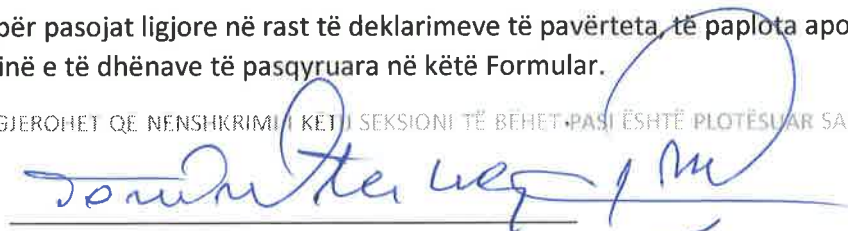 për pasojat ligjore në rast të deklarimeve të pavërteta, të paplota apo
inë e të dhënave të pasqyruara në këtë Formular.
GJEROHET QË NËNSHKRIMI I KËTIJ SEKSIONI TË BËHET PASI ËSHTË PLOTËSUAR SA